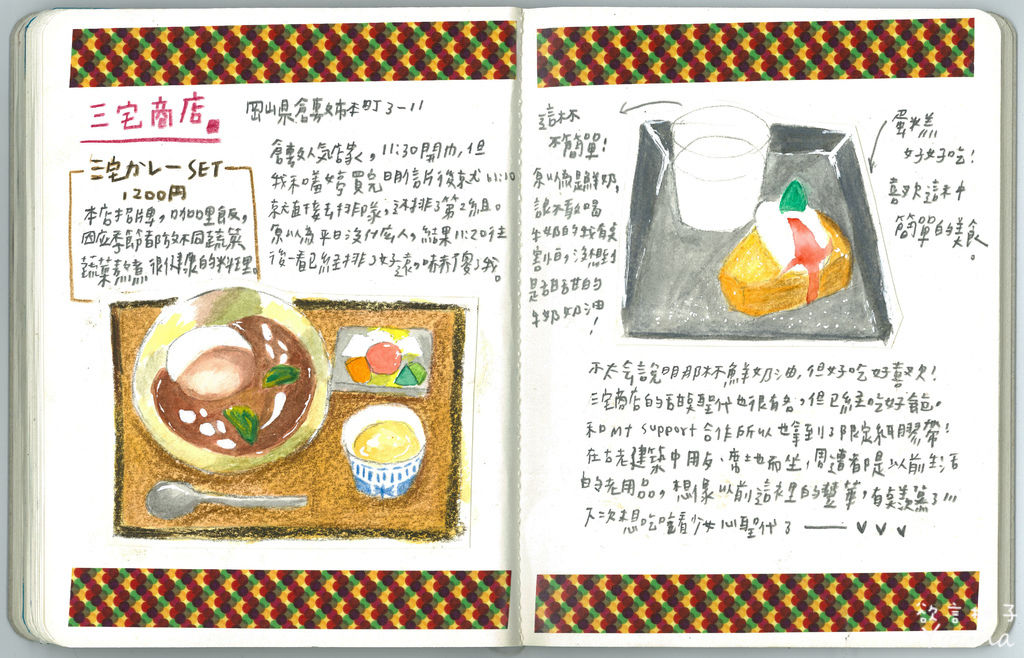 三宅商店
岡山県倉敷市本町3-11
三宅カレーSET
1200円
本店招牌,咖哩飯,
因應季節都放不同蔬菜
蔬菜熬煮很健康的料理。
倉敷人氣店家,11:30開門,但
我和喵婷買完明信片後就11:10
就直接去排隊,還排第2組。
原以為平日沒什麼人,結果11:20往
後一看已經排了好遠,嚇傻了我。
這杯
不簡單!
原以為是鮮奶,
說不敢喝
牛奶的蛙友
割百,沒想到
是甜甜的
牛奶奶油!
蛋糕
好好吃!
喜歡這種
簡單的美食。
不太會說明那杯鮮奶油,但好吃好喜歡!
三宅商店的甜點聖代也很有名,但已經吃好飽。
和mt support合作所以也拿到了限定紙膠帶!
在古老建築中用餐、席地而坐,周遭都是以前生活
的老用品,想像以前這裡的繁華,有夠羨慕了!!!
下次想吃吃看少女心聖代了
欲言柚子